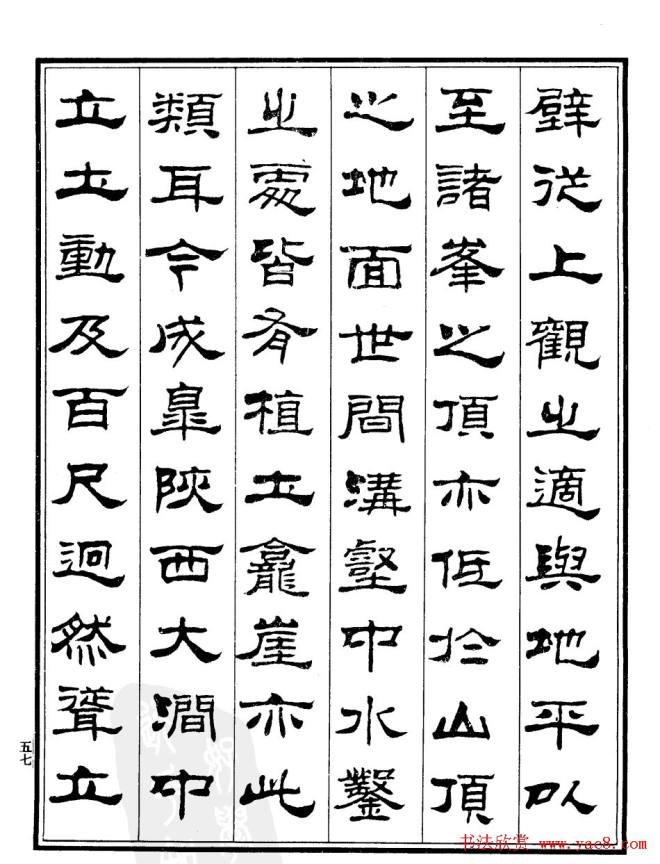 壁從上觀之適與地平以
至諸峯之頂亦低於山頂
之地面世間溝壑中水鑿
之處皆有植土龕崖亦此
類耳今成皐陝西大澗中
立土動及百尺迥然聳立
五七
书法欣赏 www.yac8.com